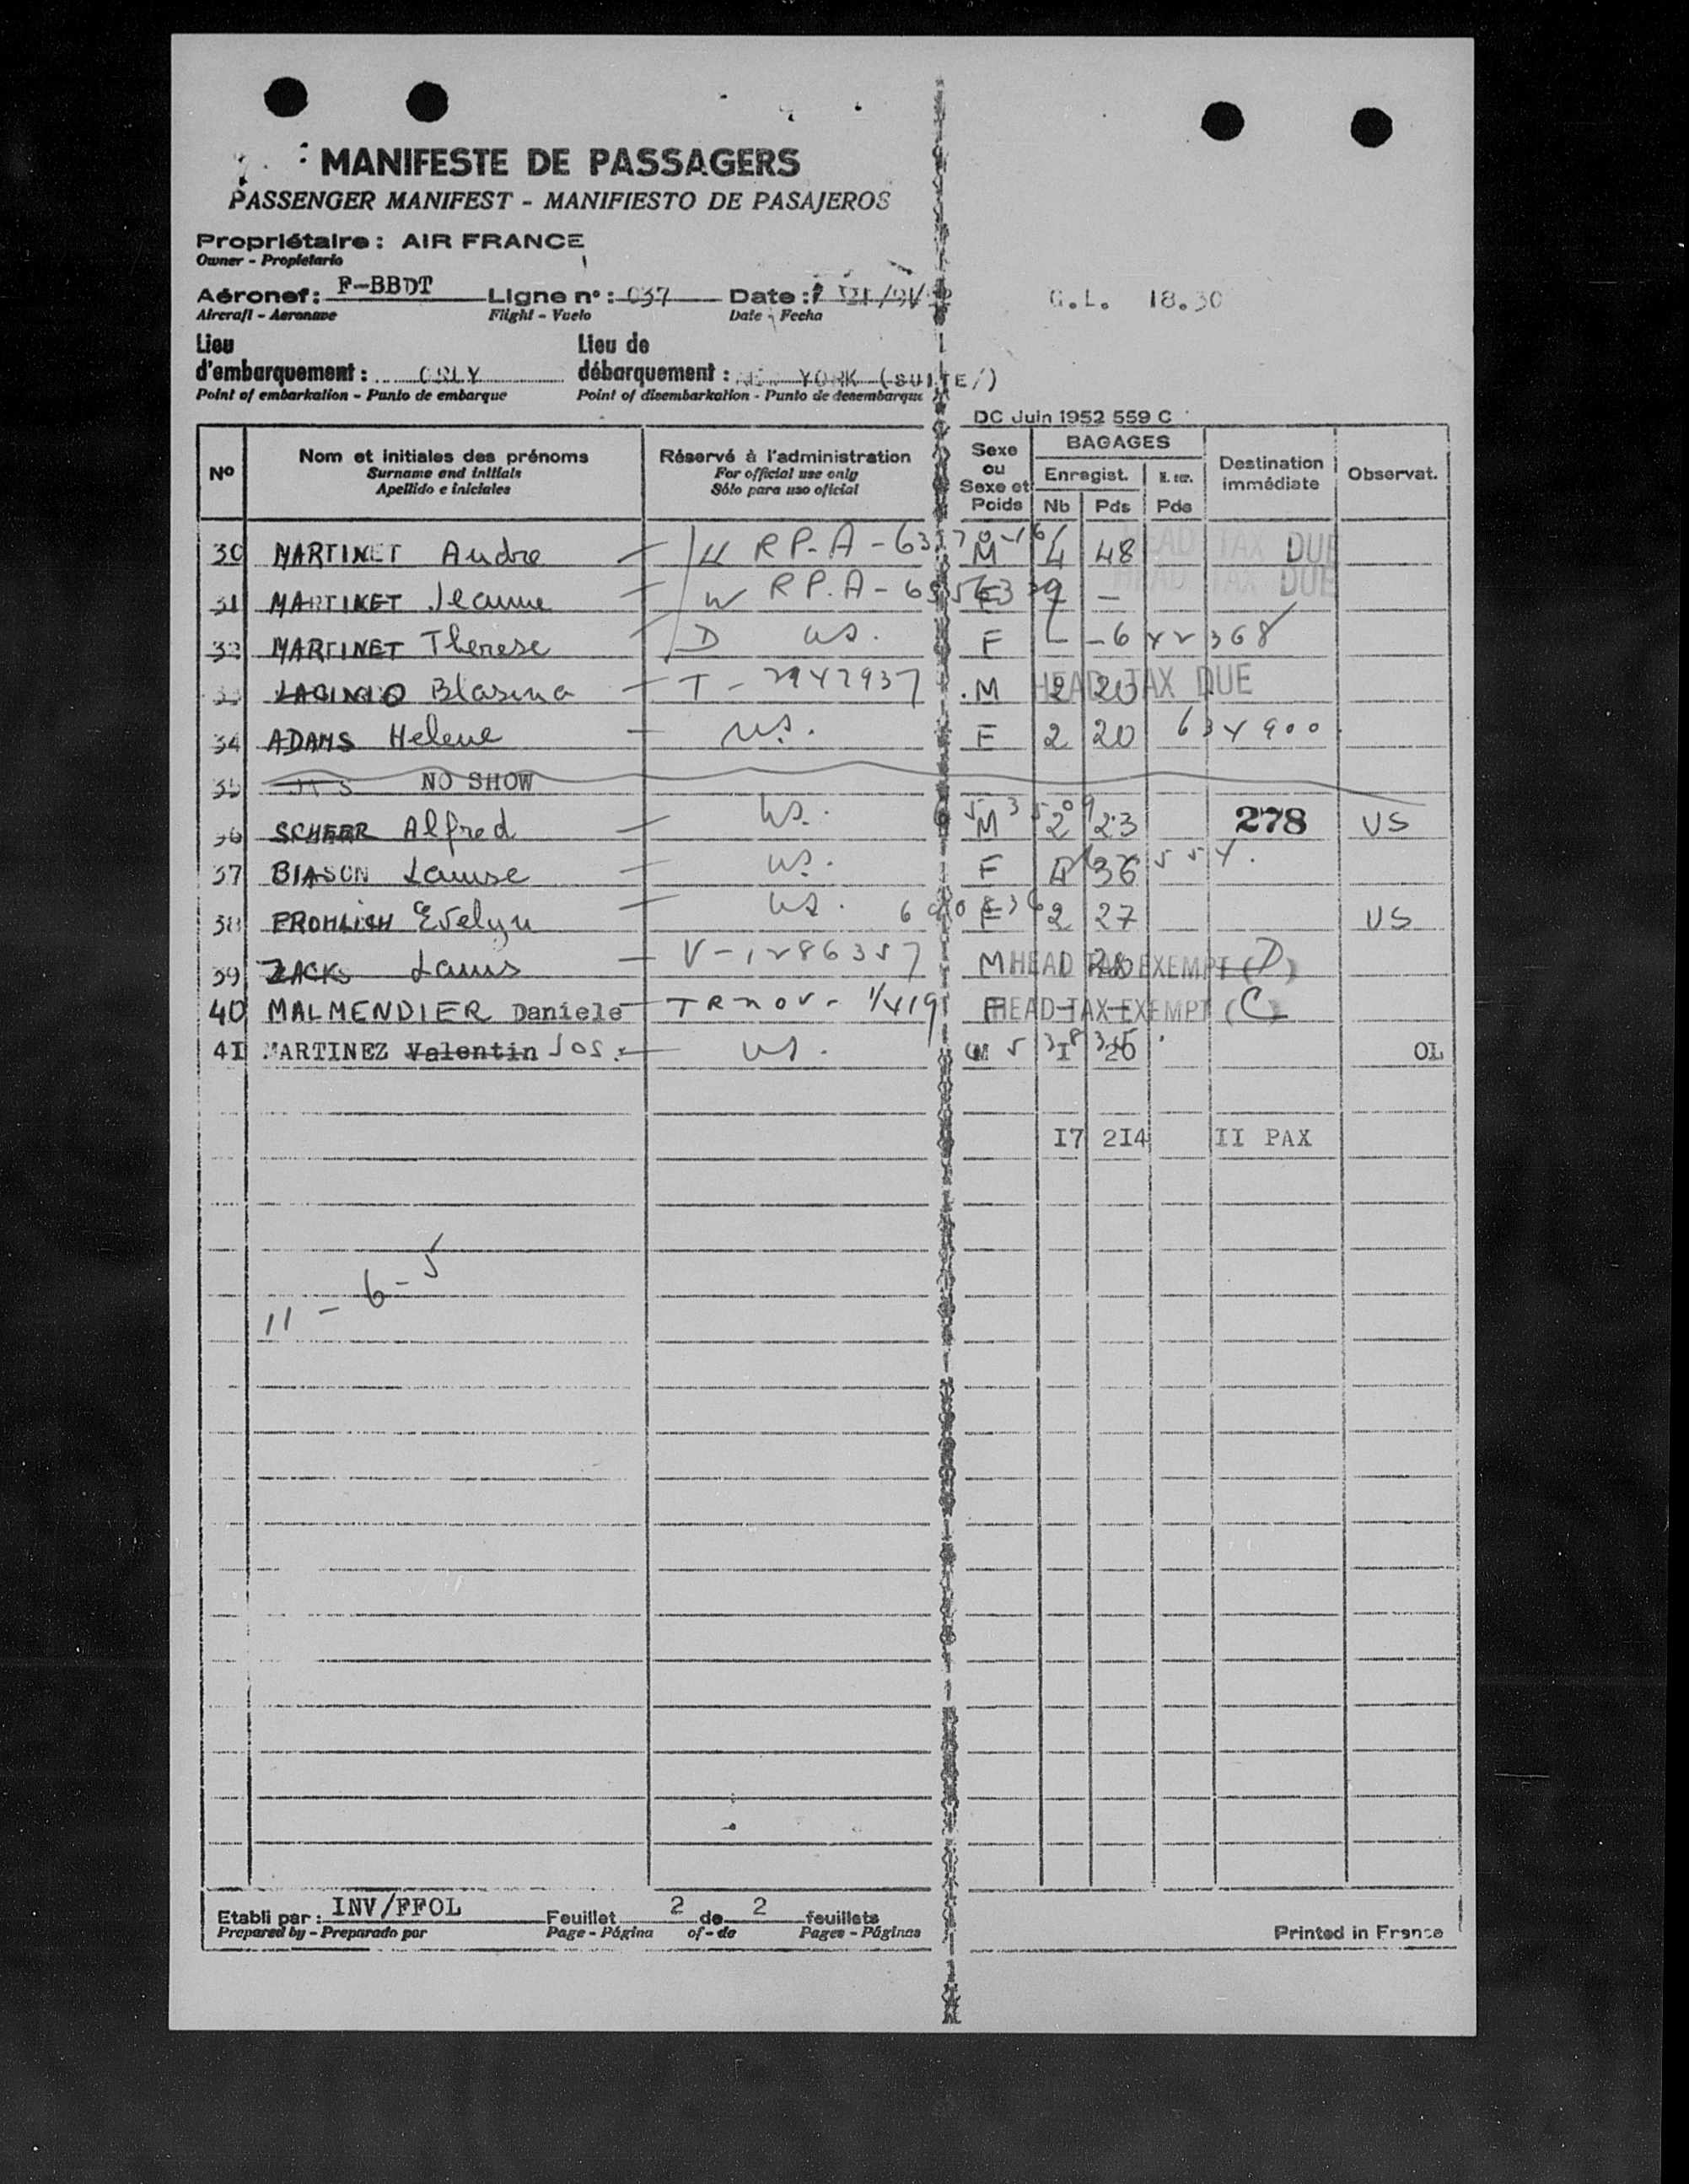 MANIFESTE DE PASSAGERS
PASSENGER MANIFEST - MANIFIESTO DE PASAJEROS
Propriétaire : AIR FRANCE
Owner - Propietario
Aéronef : F-BBDT Ligne n° : 037 Date :
Aircraft - Aeronave Flight - Vuelo Date - Fecha
G.L. 18.30
Lieu d'embarquement : ORLY Lieu de débarquement : NEW YORK (SUITE/)
Point of embarkation - Punto de embarque Point of disembarkation - Punto de desembarque
DC Juin 1952 559 C
N° Nom et initiales des prénoms Réservé à l'administration Sexe ou Sexe et Poids BAGAGES Destination immédiate Observat.
Surname and initials For official use only Enregist. N. enr.
Apellido e iniciales Sólo para uso oficial Nb Pds Pds
30 MARTINET Andre RP-A-6 M 4 48 HEAD TAX DUE
31 MARTINET Jeanne W RP.A-6 F HEAD TAX DUE
32 MARTINET Therese D us. F - -6 42368
33 Blasina T-2942937 M 2 20 HEAD TAX DUE
34 ADAMS Helene us. F 2 20 634900
35 NO SHOW
36 SCHEER Alfred us. M 2 23 278 US
37 BIASON Louise us. F 4 36
38 FROHLICH Evelyn us. F 2 27 US
39 ZACKS Louis V-1286357 M HEAD TAX EXEMPT (D)
40 MALMENDIER Daniele TRnov- 1/419 F HEAD TAX EXEMPT (C)
4I MARTINEZ Valentin Jos. us. M I 20 OL
I7 2I4 II PAX
11 - 6 - 5
Etabli par : INV/FFOL Feuillet 2 de 2 feuillets
Prepared by - Preparado por Page - Página of - de Pages - Páginas
Printed in France